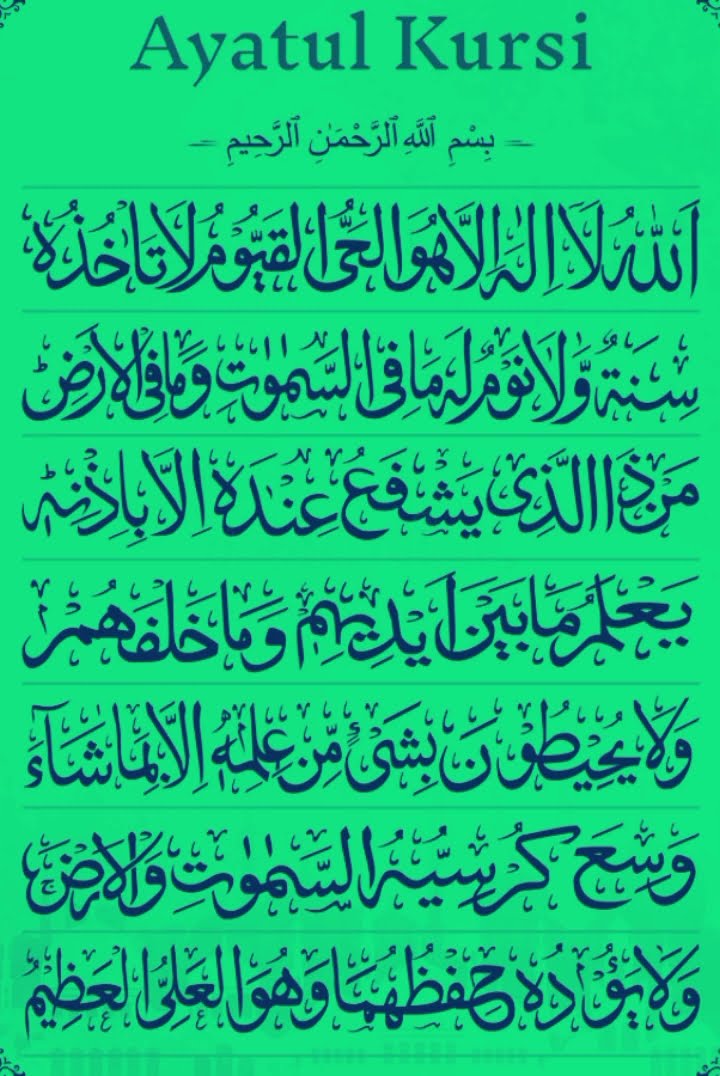 Ayatul Kursi
بِسْمِ ٱللَّهِ ٱلرَّحْمَـٰنِ ٱلرَّحِيمِ
اَللّٰهُ لَاۤ اِلٰهَ اِلَّا هُوَ الۡحَـىُّ الۡقَيُّوۡمُ لَا تَاۡخُذُهٗ
سِنَةٌ وَّلَا نَوۡمٌ لَهٗ مَا فِى السَّمٰوٰتِ وَمَا فِى الۡاَرۡضِؕ
مَنۡ ذَا الَّذِىۡ يَشۡفَعُ عِنۡدَهٗۤ اِلَّا بِاِذۡنِهٖؕ
يَعۡلَمُ مَا بَيۡنَ اَيۡدِيۡهِمۡ وَمَا خَلۡفَهُمۡۚ
وَلَا يُحِيۡطُوۡنَ بِشَىۡءٍ مِّنۡ عِلۡمِهٖۤ اِلَّا بِمَا شَآءَ
وَسِعَ كُرۡسِيُّهُ السَّمٰوٰتِ وَالۡاَرۡضَۚ
وَلَا يَــُٔوۡدُهٗ حِفۡظُهُمَا وَهُوَ الۡعَلِىُّ الۡعَظِيۡمُ